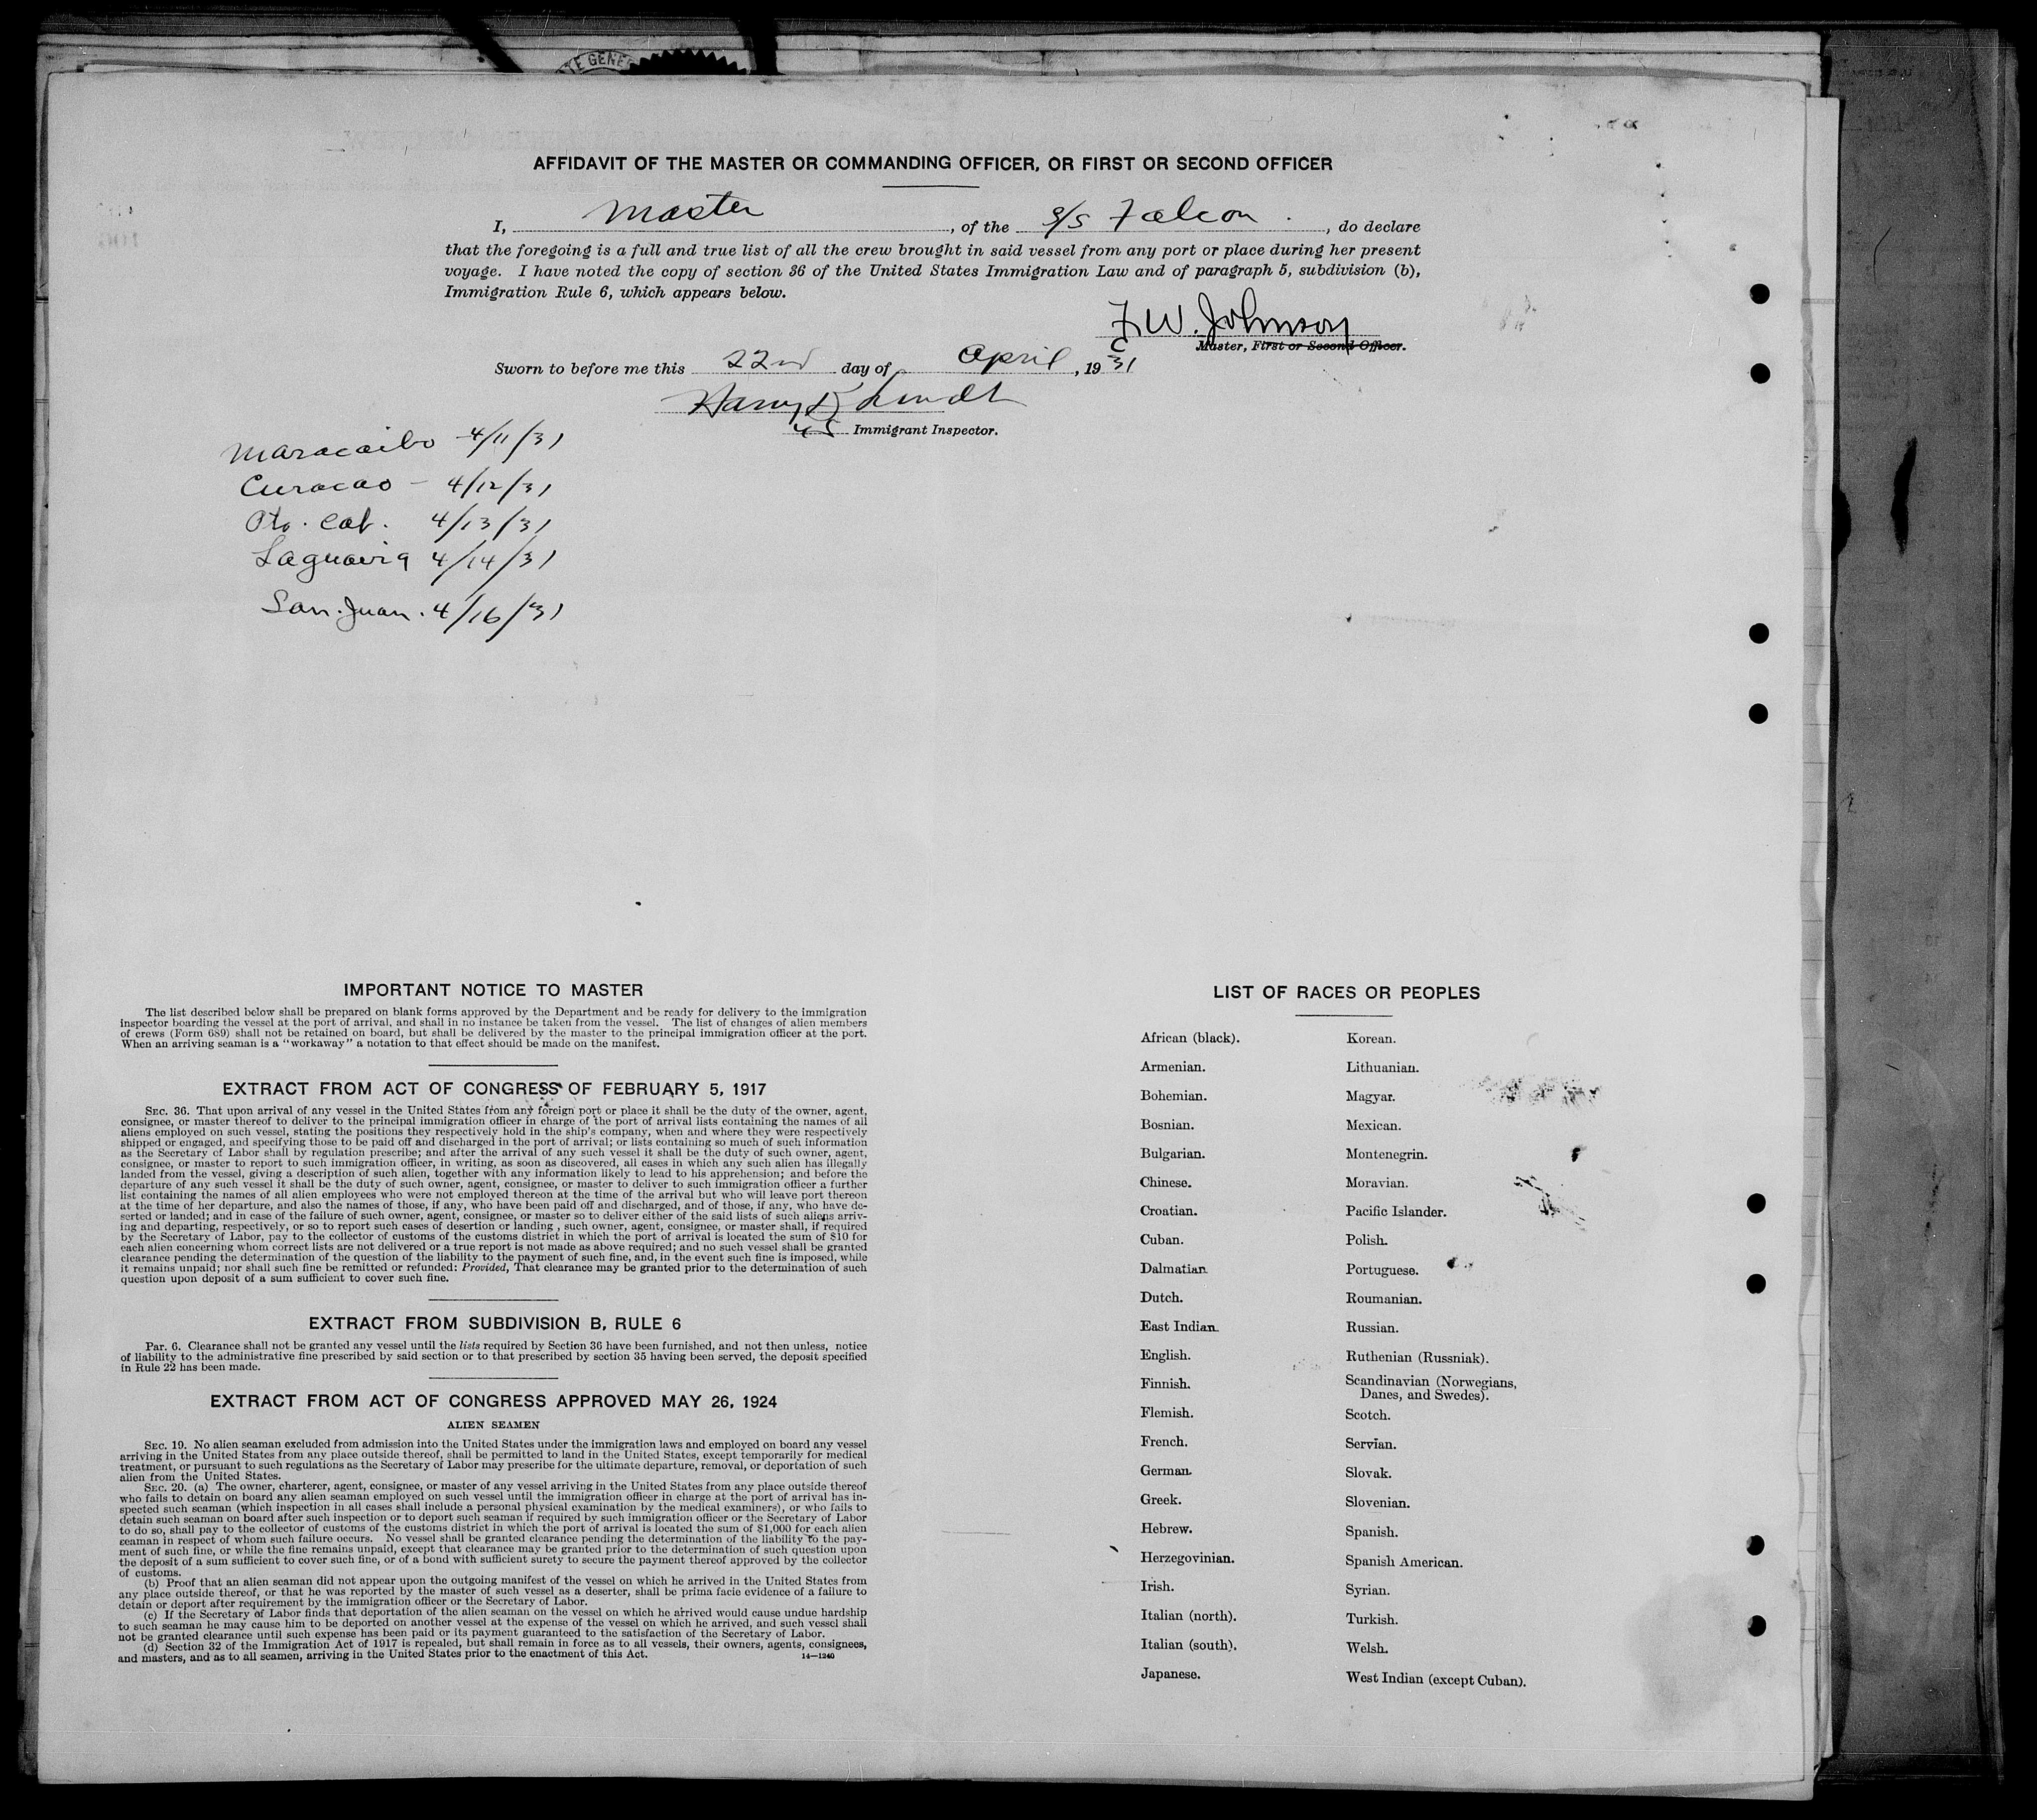 TE GENE
AFFIDAVIT OF THE MASTER OR COMMANDING OFFICER, OR FIRST OR SECOND OFFICER
I, Master, of the S/S Falcon., do declare
that the foregoing is a full and true list of all the crew brought in said vessel from any port or place during her present
voyage. I have noted the copy of section 36 of the United States Immigration Law and of paragraph 5, subdivision (b),
Immigration Rule 6, which appears below.
F.W. Johnson
Master, First or Second Officer.
Sworn to before me this 22nd day of April, 1931
Harry
Immigrant Inspector.
Maracaibo 4/11/31
Curacao - 4/12/31
Pto. Cab. 4/13/31
Laguaira 4/14/31
San. Juan. 4/16/31
IMPORTANT NOTICE TO MASTER
The list described below shall be prepared on blank forms approved by the Department and be ready for delivery to the immigration
inspector boarding the vessel at the port of arrival, and shall in no instance be taken from the vessel. The list of changes of alien members
of crews (Form 689) shall not be retained on board, but shall be delivered by the master to the principal immigration officer at the port.
When an arriving seaman is a "workaway" a notation to that effect should be made on the manifest.
EXTRACT FROM ACT OF CONGRESS OF FEBRUARY 5, 1917
SEC. 36. That upon arrival of any vessel in the United States from any foreign port or place it shall be the duty of the owner, agent,
consignee, or master thereof to deliver to the principal immigration officer in charge of the port of arrival lists containing the names of all
aliens employed on such vessel, stating the positions they respectively hold in the ship's company, when and where they were respectively
shipped or engaged, and specifying those to be paid off and discharged in the port of arrival; or lists containing so much of such information
as the Secretary of Labor shall by regulation prescribe; and after the arrival of any such vessel it shall be the duty of such owner, agent,
consignee, or master to report to such immigration officer, in writing, as soon as discovered, all cases in which any such alien has illegally
landed from the vessel, giving a description of such alien, together with any information likely to lead to his apprehension; and before the
departure of any such vessel it shall be the duty of such owner, agent, consignee, or master to deliver to such immigration officer a further
list containing the names of all alien employees who were not employed thereon at the time of the arrival but who will leave port thereon
at the time of her departure, and also the names of those, if any, who have been paid off and discharged, and of those, if any, who have de-
serted or landed; and in case of the failure of such owner, agent, consignee, or master so to deliver either of the said lists of such aliens arriv-
ing and departing, respectively, or so to report such cases of desertion or landing , such owner, agent, consignee, or master shall, if required
by the Secretary of Labor, pay to the collector of customs of the customs district in which the port of arrival is located the sum of $10 for
each alien concerning whom correct lists are not delivered or a true report is not made as above required; and no such vessel shall be granted
clearance pending the determination of the question of the liability to the payment of such fine, and, in the event such fine is imposed, while
it remains unpaid; nor shall such fine be remitted or refunded: Provided, That clearance may be granted prior to the determination of such
question upon deposit of a sum sufficient to cover such fine.
EXTRACT FROM SUBDIVISION B, RULE 6
Par. 6. Clearance shall not be granted any vessel until the lists required by Section 36 have been furnished, and not then unless, notice
of liability to the administrative fine prescribed by said section or to that prescribed by section 35 having been served, the deposit specified
in Rule 22 has been made.
EXTRACT FROM ACT OF CONGRESS APPROVED MAY 26, 1924
ALIEN SEAMEN
SEC. 19. No alien seaman excluded from admission into the United States under the immigration laws and employed on board any vessel
arriving in the United States from any place outside thereof, shall be permitted to land in the United States, except temporarily for medical
treatment, or pursuant to such regulations as the Secretary of Labor may prescribe for the ultimate departure, removal, or deportation of such
alien from the United States.
SEC. 20. (a) The owner, charterer, agent, consignee, or master of any vessel arriving in the United States from any place outside thereof
who fails to detain on board any alien seaman employed on such vessel until the immigration officer in charge at the port of arrival has in-
spected such seaman (which inspection in all cases shall include a personal physical examination by the medical examiners), or who fails to
detain such seaman on board after such inspection or to deport such seaman if required by such immigration officer or the Secretary of Labor
to do so, shall pay to the collector of customs of the customs district in which the port of arrival is located the sum of $1,000 for each alien
seaman in respect of whom such failure occurs. No vessel shall be granted clearance pending the determination of the liability to the pay-
ment of such fine, or while the fine remains unpaid, except that clearance may be granted prior to the determination of such question upon
the deposit of a sum sufficient to cover such fine, or of a bond with sufficient surety to secure the payment thereof approved by the collector
of customs.
(b) Proof that an alien seaman did not appear upon the outgoing manifest of the vessel on which he arrived in the United States from
any place outside thereof, or that he was reported by the master of such vessel as a deserter, shall be prima facie evidence of a failure to
detain or deport after requirement by the immigration officer or the Secretary of Labor.
(c) If the Secretary of Labor finds that deportation of the alien seaman on the vessel on which he arrived would cause undue hardship
to such seaman he may cause him to be deported on another vessel at the expense of the vessel on which he arrived, and such vessel shall
not be granted clearance until such expense has been paid or its payment guaranteed to the satisfaction of the Secretary of Labor.
(d) Section 32 of the Immigration Act of 1917 is repealed, but shall remain in force as to all vessels, their owners, agents, consignees,
and masters, and as to all seamen, arriving in the United States prior to the enactment of this Act.
14—1240
LIST OF RACES OR PEOPLES
African (black).
Armenian.
Bohemian.
Bosnian.
Bulgarian.
Chinese.
Croatian.
Cuban.
Dalmatian.
Dutch.
East Indian.
English.
Finnish.
Flemish.
French.
German.
Greek.
Hebrew.
Herzegovinian.
Irish.
Italian (north).
Italian (south).
Japanese.
Korean.
Lithuanian.
Magyar.
Mexican.
Montenegrin.
Moravian.
Pacific Islander.
Polish.
Portuguese.
Roumanian.
Russian.
Ruthenian (Russniak).
Scandinavian (Norwegians,
Danes, and Swedes).
Scotch.
Servian.
Slovak.
Slovenian.
Spanish.
Spanish American.
Syrian.
Turkish.
Welsh.
West Indian (except Cuban).